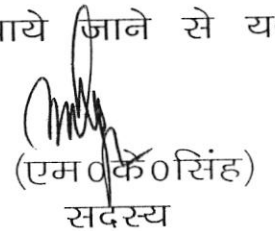 जाने से
(एम०के०सिंह)
सदस्य